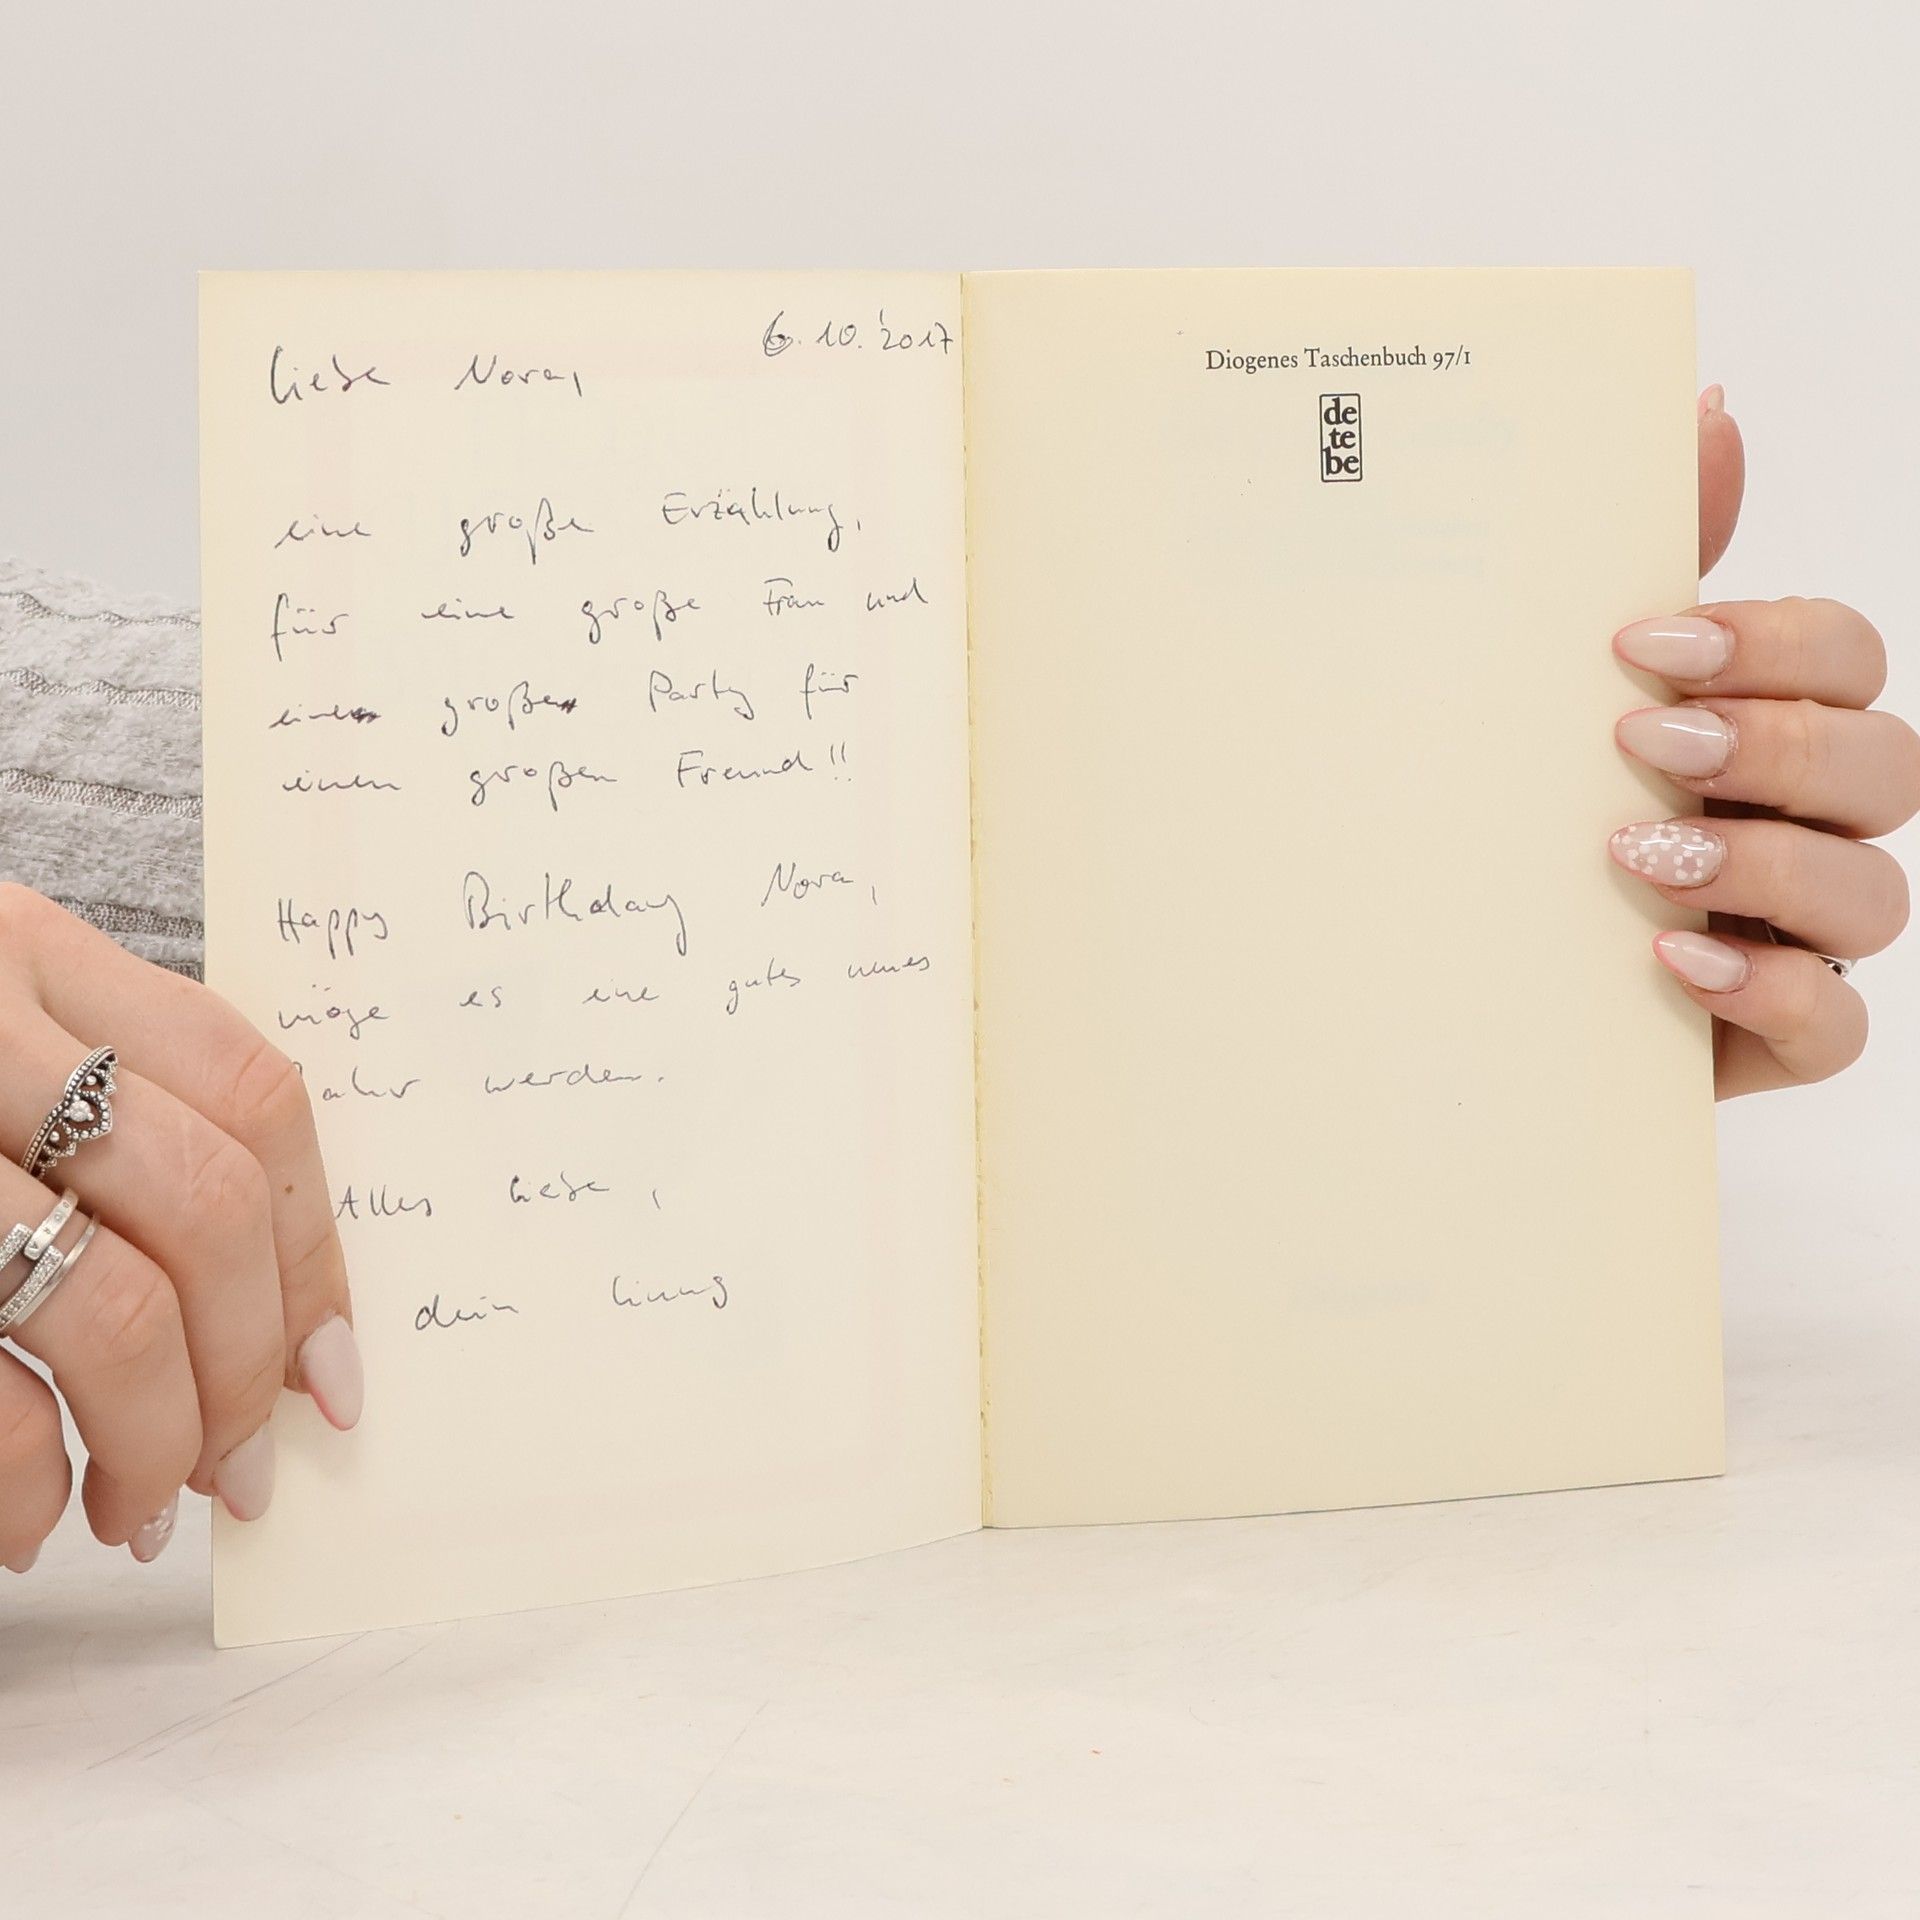 6.10.'2017
Liebe Nora,
eine große Erzählung,
für eine große Frau und
eine große Party für
einen großen Freund!!
Happy Birthday Nora,
möge es eine gutes neues
Jahr werden.
Alles Liebe,
dein
Diogenes Taschenbuch 97/1
de
te
be